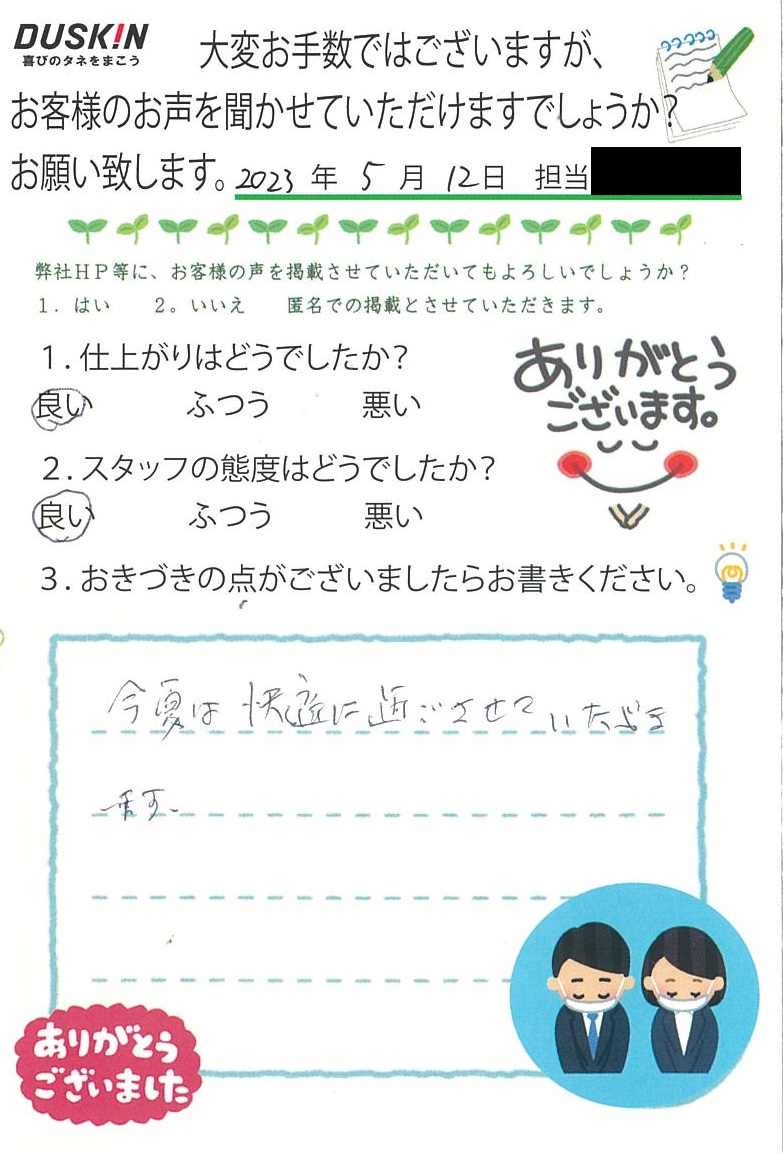 DUSKIN
喜びのタネをまこう
大変お手数ではございますが、
お客様のお声を聞かせていただけますでしょうか？
お願い致します。2023 年 5 月 12日 担当
弊社ＨＰ等に、お客様の声を掲載させていただいてもよろしいでしょうか？
１．はい ２。いいえ 匿名での掲載とさせていただきます。
１．仕上がりはどうでしたか？
良い ふつう 悪い
ありがとう
ございます。
２．スタッフの態度はどうでしたか？
良い ふつう 悪い
３．おきづきの点がございましたらお書きください。
今夏は快適に過ごさせていただき
ます。
ありがとう
ございました